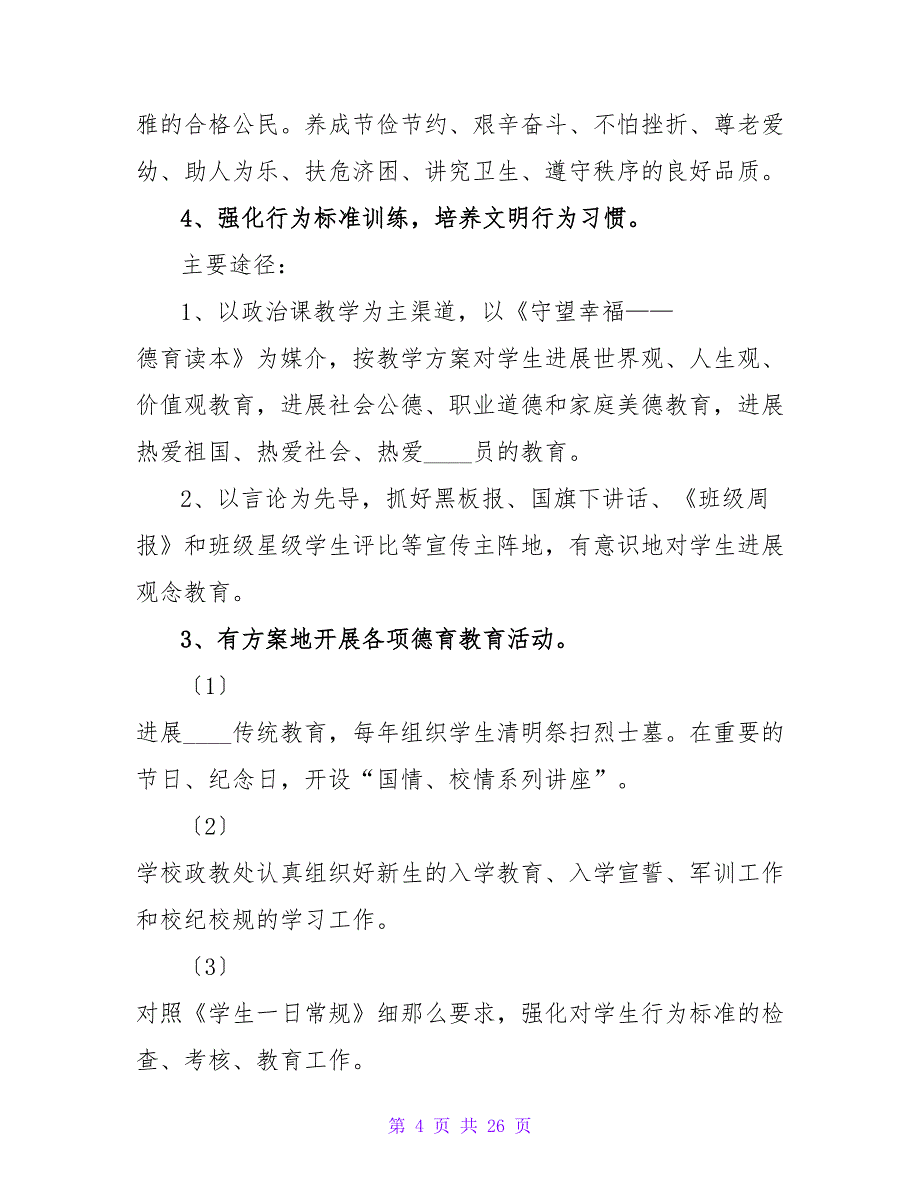 雅的合格公民。养成节俭节约、艰辛奋斗、不怕挫折、尊老爱
幼、助人为乐、扶危济困、讲究卫生、遵守秩序的良好品质。
4、强化行为标准训练，培养文明行为习惯。
主要途径：
1、以政治课教学为主渠道，以《守望幸福——
德育读本》为媒介，按教学方案对学生进展世界观、人生观、
价值观教育，进展社会公德、职业道德和家庭美德教育，进展
热爱祖国、热爱社会、热爱____员的教育。
2、以言论为先导，抓好黑板报、国旗下讲话、《班级周
报》和班级星级学生评比等宣传主阵地，有意识地对学生进展
观念教育。
3、有方案地开展各项德育教育活动。
〔1〕
进展____传统教育，每年组织学生清明祭扫烈士墓。在重要的
节日、纪念日，开设“国情、校情系列讲座”。
〔2〕
学校政教处认真组织好新生的入学教育、入学宣誓、军训工作
和校纪校规的学习工作。
〔3〕
对照《学生一日常规》细那么要求，强化对学生行为标准的检
查、考核、教育工作。
第 4 页 共 26 页